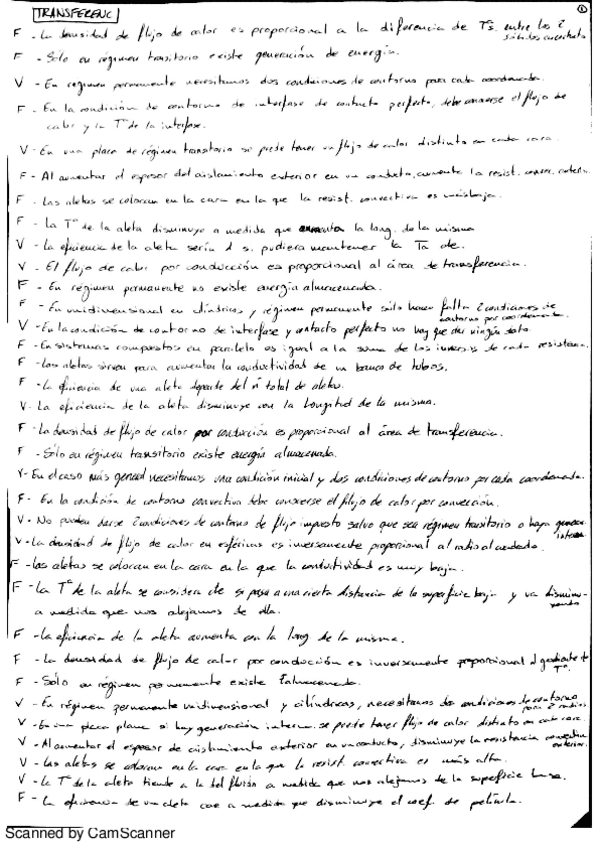 TRANSFERENC
1
F - La densidad de flujo de calor es proporcional a la diferencia de Tªs. entre los 2
sólidos
F - Sólo en régimen transitorio existe generación de energía.
V - En régimen permanente necesitamos dos condiciones de contorno para cada coordenada.
F - En la condición de contorno de interfase de contacto perfecto, debe conocerse el flujo de
calor y la Tª de la interfase.
V - En una placa de régimen transitorio se puede tener un flujo de calor distinto en cada cara.
F - Al aumentar el espesor del aislamiento exterior en un conducto, aumenta la resist. convec. exterior.
F - Las aletas se colocan en la cara en la que la resist. convectiva es más baja.
F - La Tª de la aleta disminuye a medida que aumenta la long. de la misma
V - La eficiencia de la aleta sería 1 si pudiera mantener la Ta cte.
V - El flujo de calor por conducción es proporcional al área de transferencia.
F - En régimen permanente no existe energía almacenada.
F - En unidimensional en cilíndricas y régimen permanente sólo hacen falta 2 condiciones de
contorno por coordenada.
V - En la condición de contorno de interfase y contacto perfecto no hay que dar ningún dato
F - En sistemas compuestos en paralelo es igual a la suma de los inversos de cada resistencia.
F - Las aletas sirven para aumentar la conductividad de un banco de tubos.
F - La eficiencia de una aleta depende del nº total de aletas.
V - La eficiencia de la aleta disminuye con la longitud de la misma.
F - La densidad de flujo de calor por conducción es proporcional al área de transferencia.
F - Sólo en régimen transitorio existe energía almacenada.
V - En el caso más general necesitamos una condición inicial y dos condiciones de contorno por cada coordenada.
F - En la condición de contorno convectiva debe conocerse el flujo de calor por convección.
V - No pueden darse 2 condiciones de contorno de flujo impuesto salvo que sea régimen transitorio o haya generac.
interna
V - La densidad de flujo de calor en esféricas es inversamente proporcional al radio al cuadrado.
F - Las aletas se colocan en la cara en la que la conductividad es muy baja.
F - La Tª de la aleta se considera cte si pasa a una cierta distancia de la superficie baja y va disminu-
yendo
a medida que nos alejamos de ella.
F - La eficiencia de la aleta aumenta con la long de la misma.
F - La densidad de flujo de calor por conducción es inversamente proporcional al gradiente de
Tª.
F - Sólo en régimen permanente existe Ealmacenada.
V - En régimen permanente unidimensional y cilíndricas, necesitamos dos condiciones de contorno
para 2 radios
V - En una placa plana si hay generación interna se puede tener flujo de calor distinto en cada cara.
V - Al aumentar el espesor de aislamiento exterior en un conducto, disminuye la resistencia convectiva
exterior.
V - Las aletas se colocan en la cara en la que la resist. convectiva es más alta.
V - La Tª de la aleta tiende a la del fluido a medida que nos alejamos de la superficie base.
F - La eficiencia de una aleta cae a medida que disminuye el coef. de película.
Scanned by CamScanner